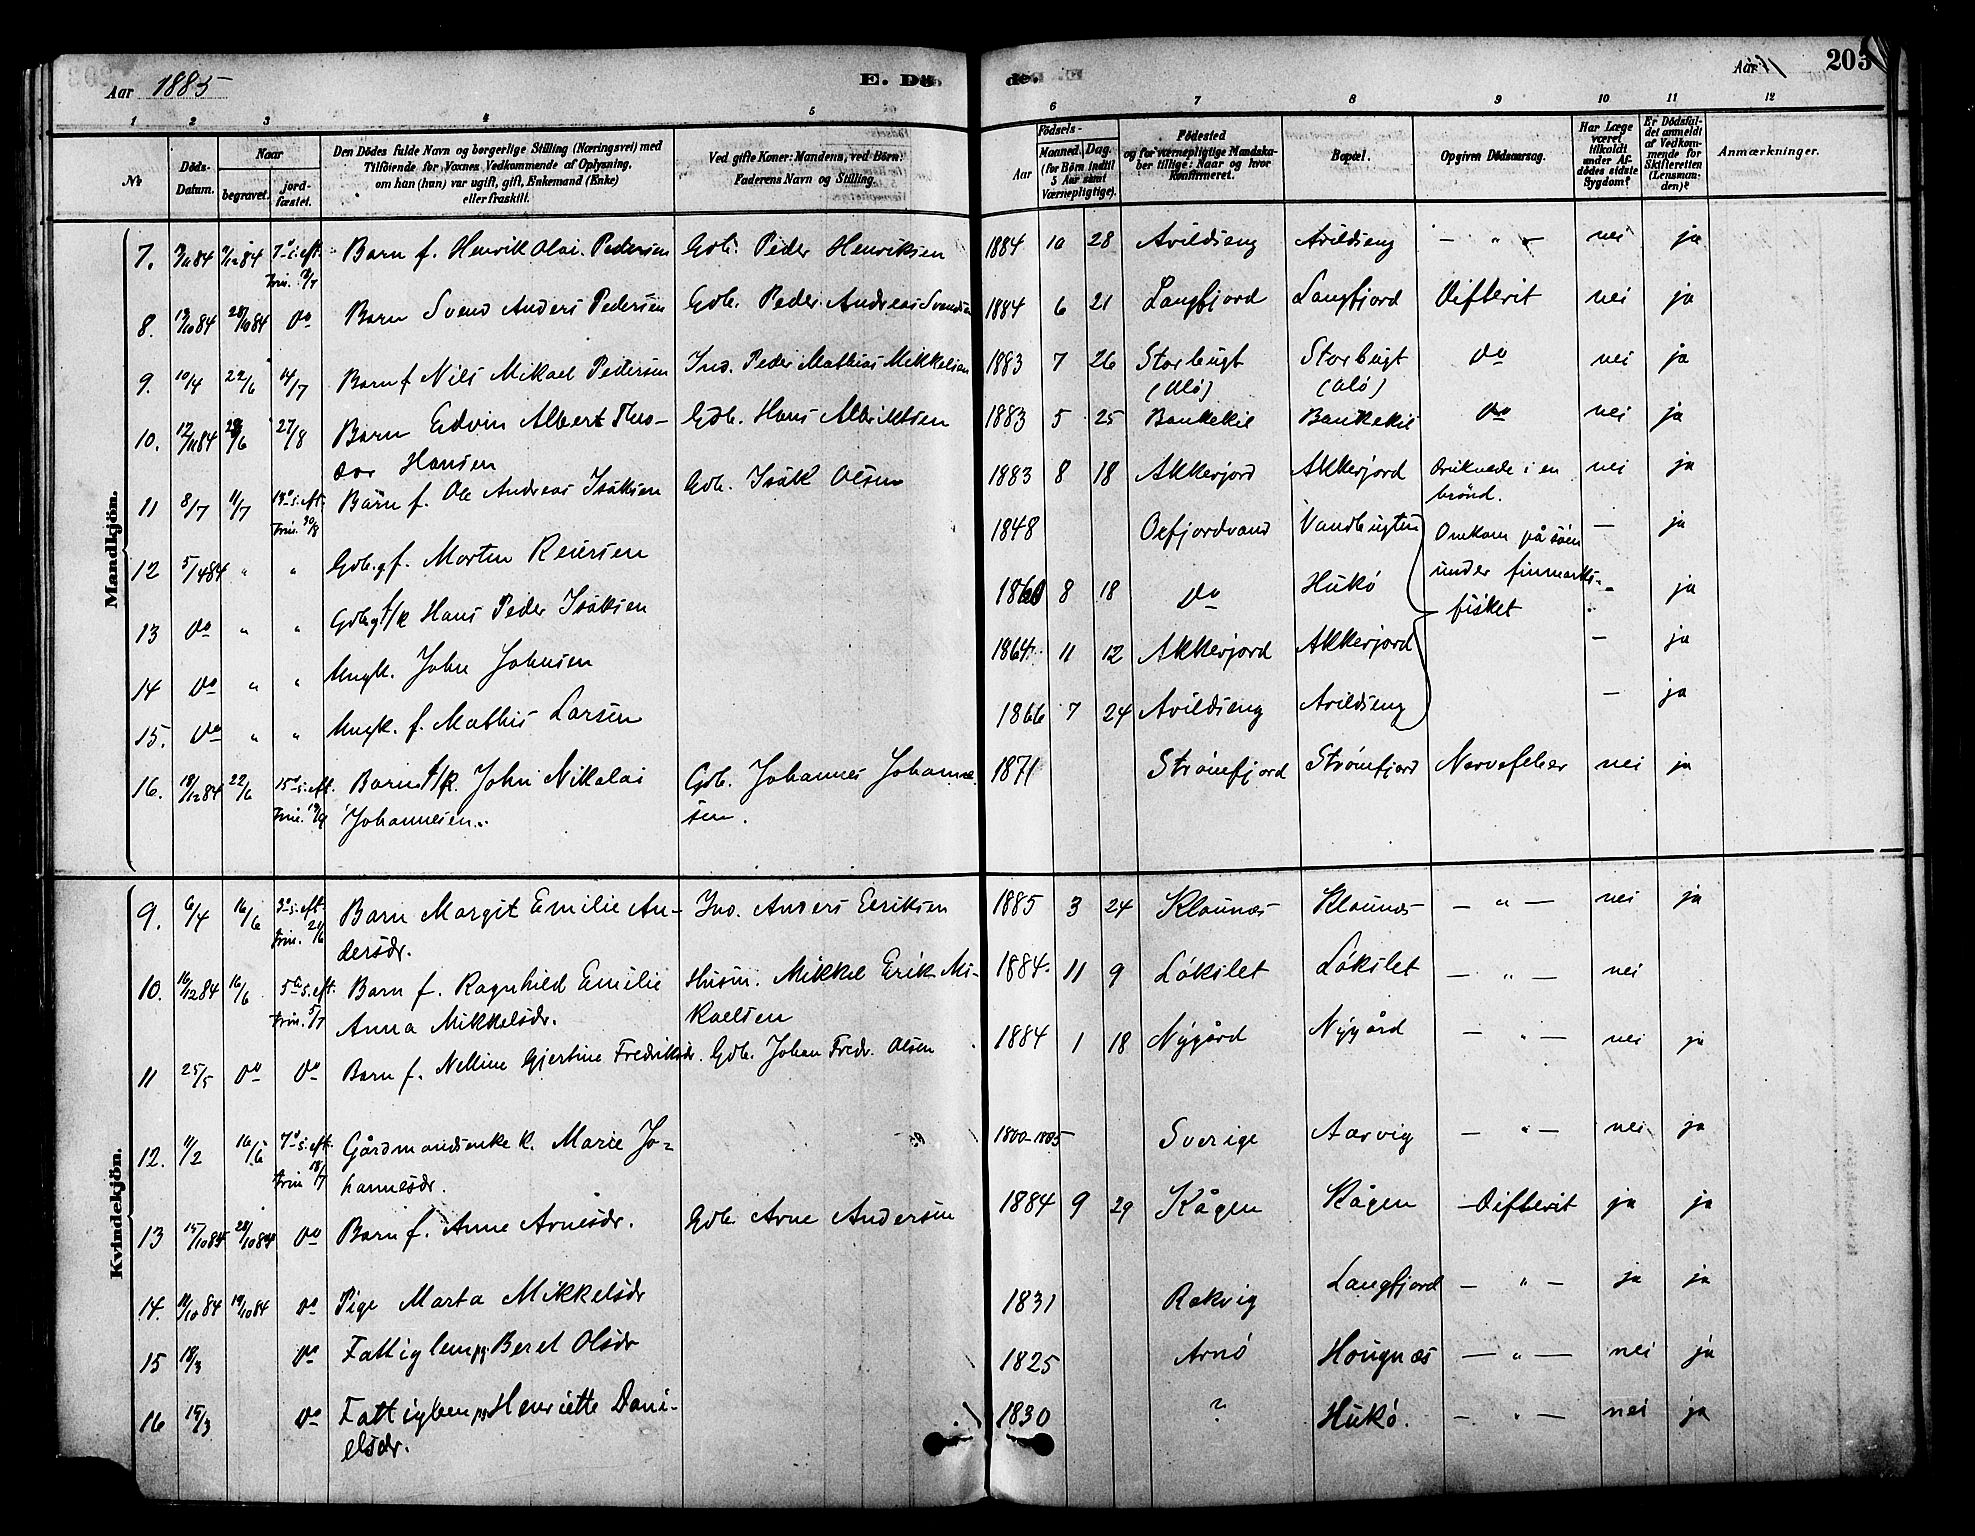 Aar 1885
E. Dö
de.
Aar
205
1 2 3 4 5 6 7 8 9 10 11 12
№
Döds-Datum.
Naar
begravet.
jord-fæstet.
Den Dödes fulde Navn og borgerlige Stilling (Næringsvei) med
Tilföiende for Voxnes Vedkommende af Oplysning,
om han (hun) var ugift, gift, Enkemand (Enke)
eller fraskilt.
Ved gifte Koner: Mandens, ved Börn:
Faderens Navn og Stilling.
Födsels-
Aar
Maaned.
Dag.
(for Börn indtil
5 Aar samt
Værnepligtige).
Födested
og for værnepligtige Mandska-
ber tillige: Naar og hvor
konfirmeret.
Bopæl.
Opgiven Dödsaarsag.
Har Læge
været
tilkaldt
under Af-
dödes sidste
Sygdom?
Er Dödsfal-
det anmeldt
af Vedkom-
mende for
Skifteretten
(Lensman-
den)?
Anmærkninger.
Mandkjön.
7. 9/12 84 7de s. eft. Barn f. Henrik Olai Pedersen Gdb. Peder Henriksen 1884 10 28 Avildseng Avildseng — „ — nei ja
Trin.
8. 19/10 84 28/10 84 do Barn Svend Anders Pedersen Gdb. Peder Andreas Svendsen 1884 6 21 Langfjord Langfjord Difterit nei ja
9. 10/4 22/6 14/7 Barn f Nils Mikael Pedersen Ind. Peder Mathias Mikkelsen 1883 7 26 Storbugt Storbugt do nei ja
(Ulö) (Ulö)
10. 12/11 84 28/6 27/8 Barn Edvin Albert Theo- Gdb. Hans Albriktsen 1883 5 25 Bankekil Bankekil do nei ja
dor Hansen
11 8/7 11/7 13de s. eft. Barn f. Ole Andreas Isaksen Gdb. Isak Olsen 1883 8 18 Akkerjord Akkerjord Druknede i en nei ja
Trin. 30/8 brönd.
12 5/4 84 „ „ Gdb. gf. Morten Reiersen 1848 Oxfjordvand Vandbugten Omkom på söen — ja
13 do „ „ Gdb. g f/k Hans Peder Isaksen 1860 8 18 do Hukö under finmarks- „ ja
fisket
14 do „ „ Ungk. John Johnsen 1864 11 12 Akkerjord Akkerjord — ja
15. do „ „ Ungk. f. Mathis Larsen 1866 7 24 Avildseng Avildseng — ja
16. 18/12 84 22/6 15de s. eft. Barn f/k. John Nikolai Gdb. Johannes Johanne- 1871 Strömfjord Strömfjord Nervefeber nei ja
Trin. 13/9 Johannesen. sen.
Kvindekjön.
9. 6/4 16/6 3de s. eft. Barn Margit Emilie An- Ind. Anders Eriksen 1885 3 24 Klaunæs Klaunæs — „ — nei ja
Trin. 21/6 dersdr.
10. 16/12 84 16/6 5te s. eft. Barn f. Ragnhild Emilie Husm. Mikkel Erik Mi- 1884 11 9 Lökslet Lökslet — „ — nei
Trin. 5/7 Anna Mikkelsdr. kaelsen
11 25/5 do do Barn f. Nelline Gjertine Fredriksdr. Gdb. Johan Fredr. Olsen 1884 1 18 Nygård Nygård — „ — nei ja
12. 11/2 16/6 7de s. eft. Gårdmandsenke k. Marie Jo- 1800-1805 Sverige Aarvig — „ — nei ja
Trin 18/7 hannesdr.
13 15/10 84 28/10 84 do Barn f. Anne Arnesdr. Gdb. Arne Andersen 1884 9 29 Kågen Kågen — Difterit ja ja
14. 11/10 84 19/10 84 do Pige Marta Mikkelsdr 1831 Rakvig Langfjord — „ — ja ja
15 18/3 do Fattiglem pg. Beret Olsdr 1825 Arnö Haugnæs — „ — nei ja
16 15/3 do Fattiglem pg Henriette Dani- 1830 ? Hukö. — „ — nei ja
elsdr.